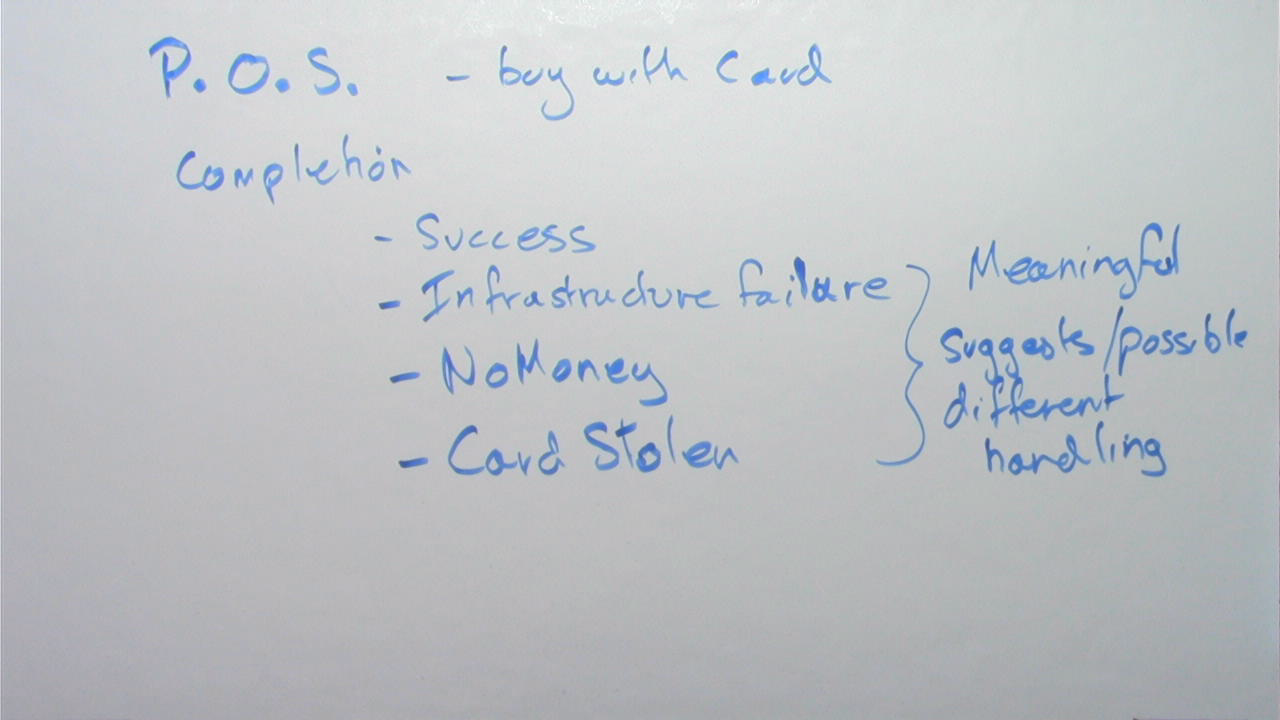 P.O.S. - buy with Card
Completion
- Success
- Infrastructure failure
- NoMoney
- Card Stolen
Meaningful
suggests/possible
different
handling